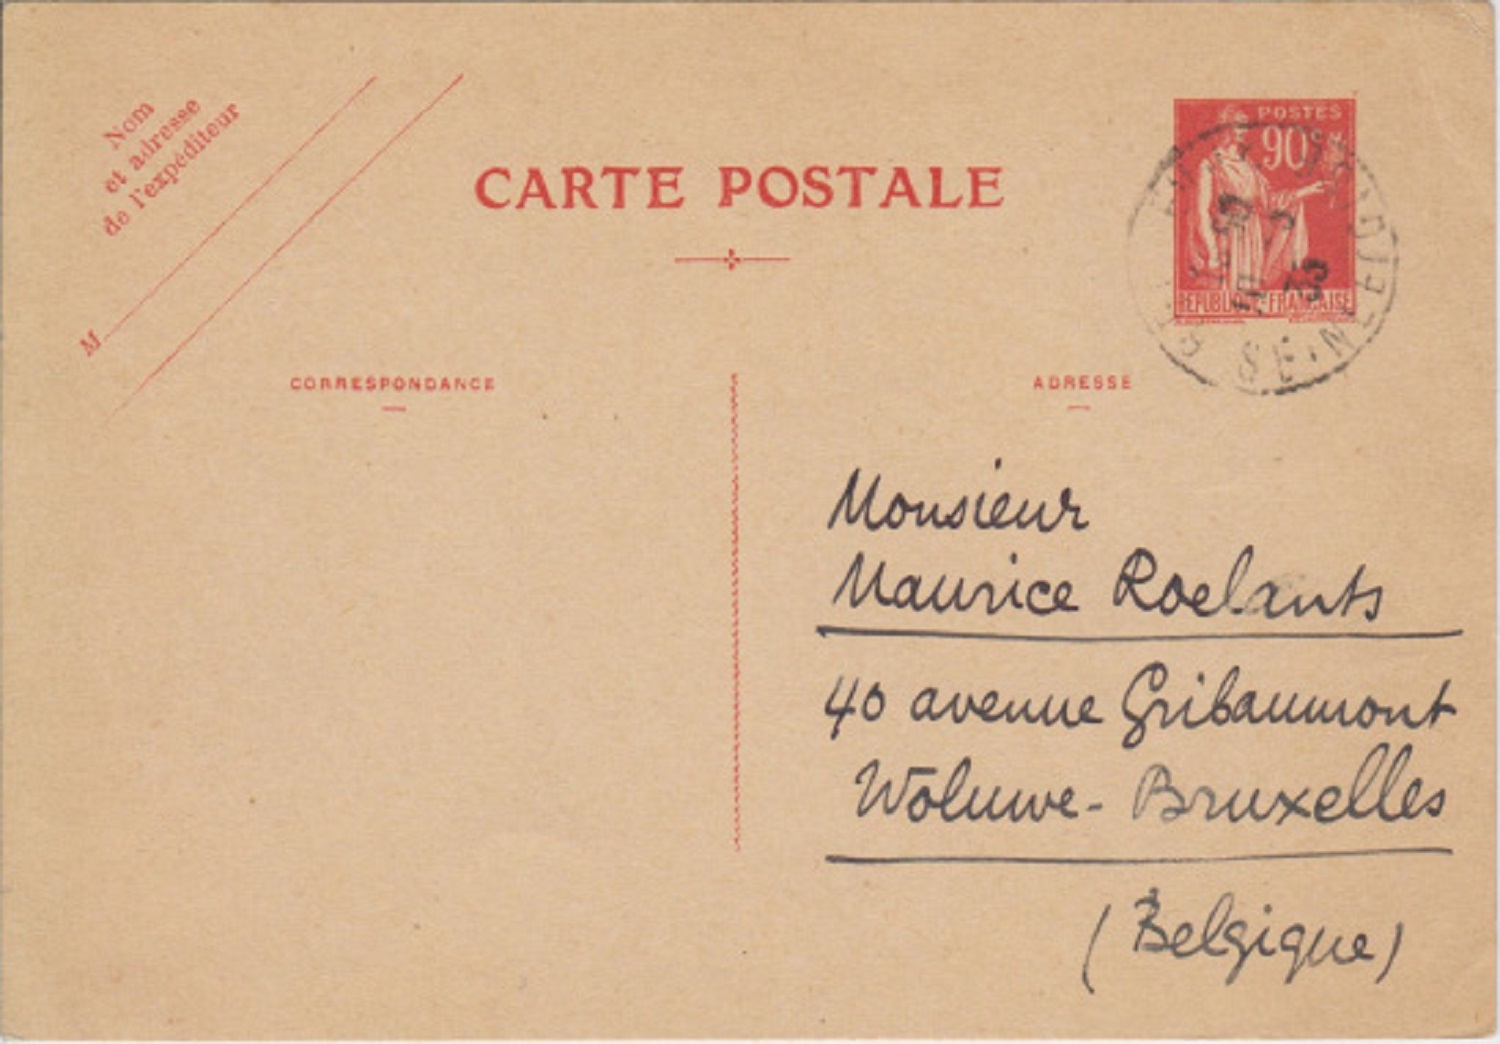 Nom
et adresse
de l'expéditeur
M
CARTE POSTALE
POSTES
90c
REPUBLIQUE FRANÇAISE
SEINE
CORRESPONDANCE
ADRESSE
Monsieur
Maurice Roelants
40 avenue Gribaumont
Woluwe - Bruxelles
(Belgique)